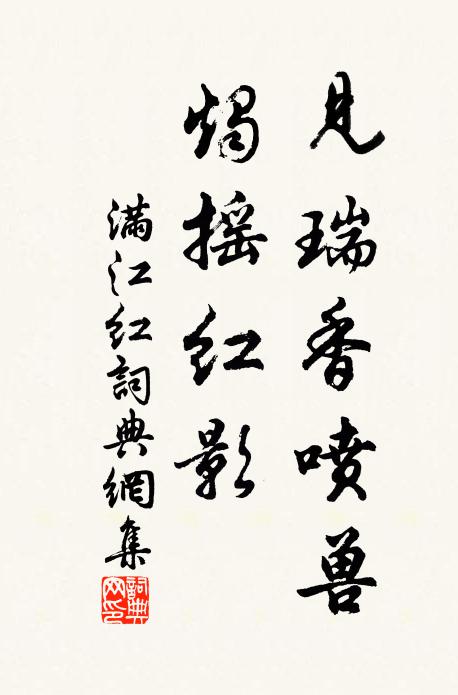 见瑞香喷兽
烛摇红影
满江红詞典網集
詞典
网印